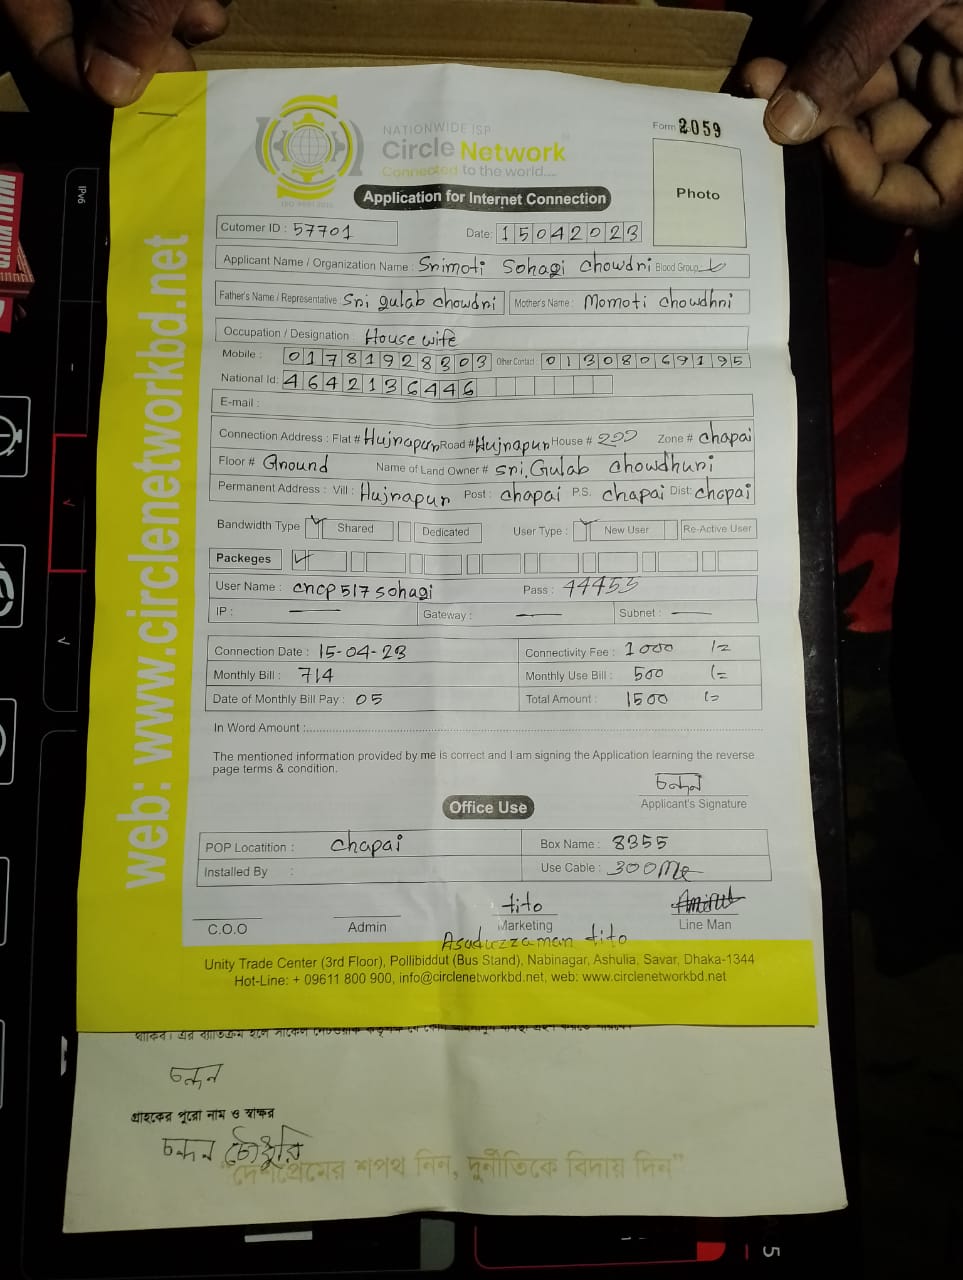 NATIONWIDE ISP
Circle Network
Connected to the world....
ISO 9001:2015
Form 2059
Photo
Application for Internet Connection
Cutomer ID : 57701
Date: 15042023
Applicant Name / Organization Name : Srimoti Sohagi Chowdri Blood Group
Father's Name / Representative : Sri gulab chowdri Mother's Name : Momoti chowdhri
Occupation / Designation : House wife
Mobile : 01781928303 Other Contact 01308069195
National Id: 4642136446
E-mail :
Connection Address : Flat # Hujrapur Road # Hujrapur House # 200 Zone # chapai
Floor # Ground Name of Land Owner # sri. Gulab chowdhuri
Permanent Address : Vill : Hujrapur Post : chapai P.S. chapai Dist: chapai
Bandwidth Type Shared Dedicated User Type : New User Re-Active User
Packeges
User Name : cncp517sohagi Pass : 44455
IP : Gateway : Subnet :
Connection Date : 15-04-23 Connectivity Fee : 1000 /=
Monthly Bill : 714 Monthly Use Bill : 500 /=
Date of Monthly Bill Pay : 05 Total Amount : 1500 /=
In Word Amount :
The mentioned information provided by me is correct and I am signing the Application learning the reverse
page terms & condition.
চন্দন
Applicant's Signature
Office Use
POP Locatition : chapai Box Name : 8355
Installed By : Use Cable : 300
tito
C.O.O Admin Marketing Line Man
Asaduzzaman tito
Unity Trade Center (3rd Floor), Pollibiddut (Bus Stand), Nabinagar, Ashulia, Savar, Dhaka-1344
Hot-Line: + 09611 800 900, info@circlenetworkbd.net, web: www.circlenetworkbd.net
web: www.circlenetworkbd.net
চন্দন
গ্রাহকের পুরো নাম ও স্বাক্ষর
চন্দন চৌধুরি
"দেশপ্রেমের শপথ নিন, দুর্নীতিকে বিদায় দিন"
IPv6
5